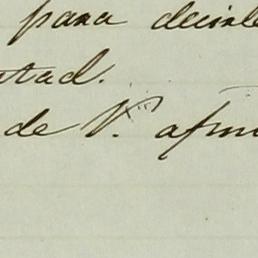 para decirle
ntad.
de V. afmo